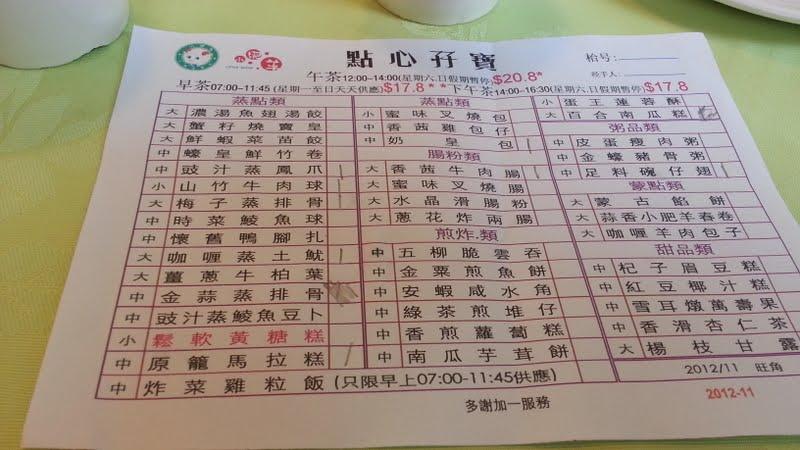 點心孖寶
枱号:
經手人:
午茶12:00~14:00(星期六,日假期暫停)$20.8*
早茶07:00~11:45 (星期一至日天天供應)$17.8* *下午茶14:00-16:30(星期六,日假期暫停)$17.8
蒸點類
大 濃湯魚翅湯餃
大 蟹籽燒賣皇
大 鮮蝦菜苗餃
中 蠔皇鮮竹卷
中 豉汁蒸鳳爪
小 山竹牛肉球
大 梅子蒸排骨
中 時菜鯪魚球
中 懷舊鴨腳扎
大 咖喱蒸土魷
大 薑蔥牛柏葉
中 金蒜蒸排骨
中 豉汁蒸鯪魚豆卜
小 鬆軟黃糖糕
中 原籠馬拉糕
中 炸菜雞粒飯(只限早上07:00-11:45供應)
蒸點類
小 蜜味叉燒包
中 香茜雞包仔
中 奶皇包
腸粉類
大 香茜牛肉腸
大 蜜味叉燒腸
大 水晶滑腸粉
大 蔥花炸兩腸
煎炸.類
中 五柳脆雲吞
中 金粟煎魚餅
中 安蝦咸水角
中 綠茶煎堆仔
中 香煎蘿蔔糕
中 南瓜芋茸餅
小 蛋王蓮蓉酥
大 百合南瓜糕
粥品類
中 皮蛋瘦肉粥
中 金蠔豬骨粥
中 足料碗仔翅
蒙點類
大 蒙古餡餅
大 蒜香小肥羊春卷
大 咖喱羊肉包子
甜品類
中 杞子眉豆糕
中 紅豆椰汁糕
中 雪耳燉萬壽果
中 香滑杏仁茶
大 楊枝甘露
2012/11 旺角
多謝加一服務
2012-11